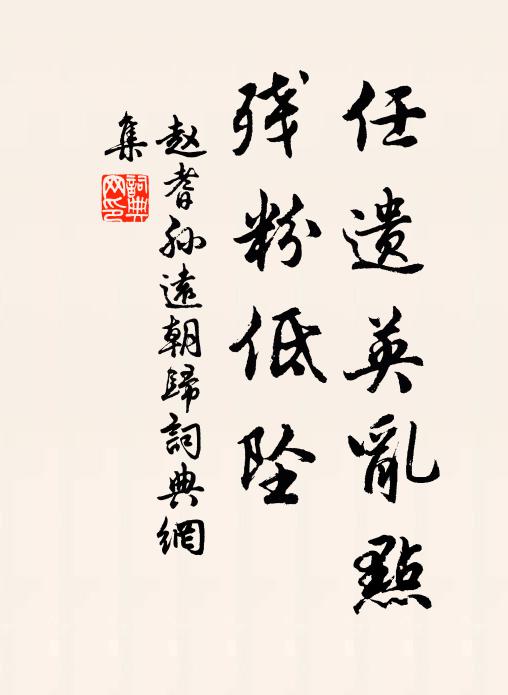 任遗英亂點
残粉低坠
赵耆孙遠朝歸詞典網
集
詞典網印